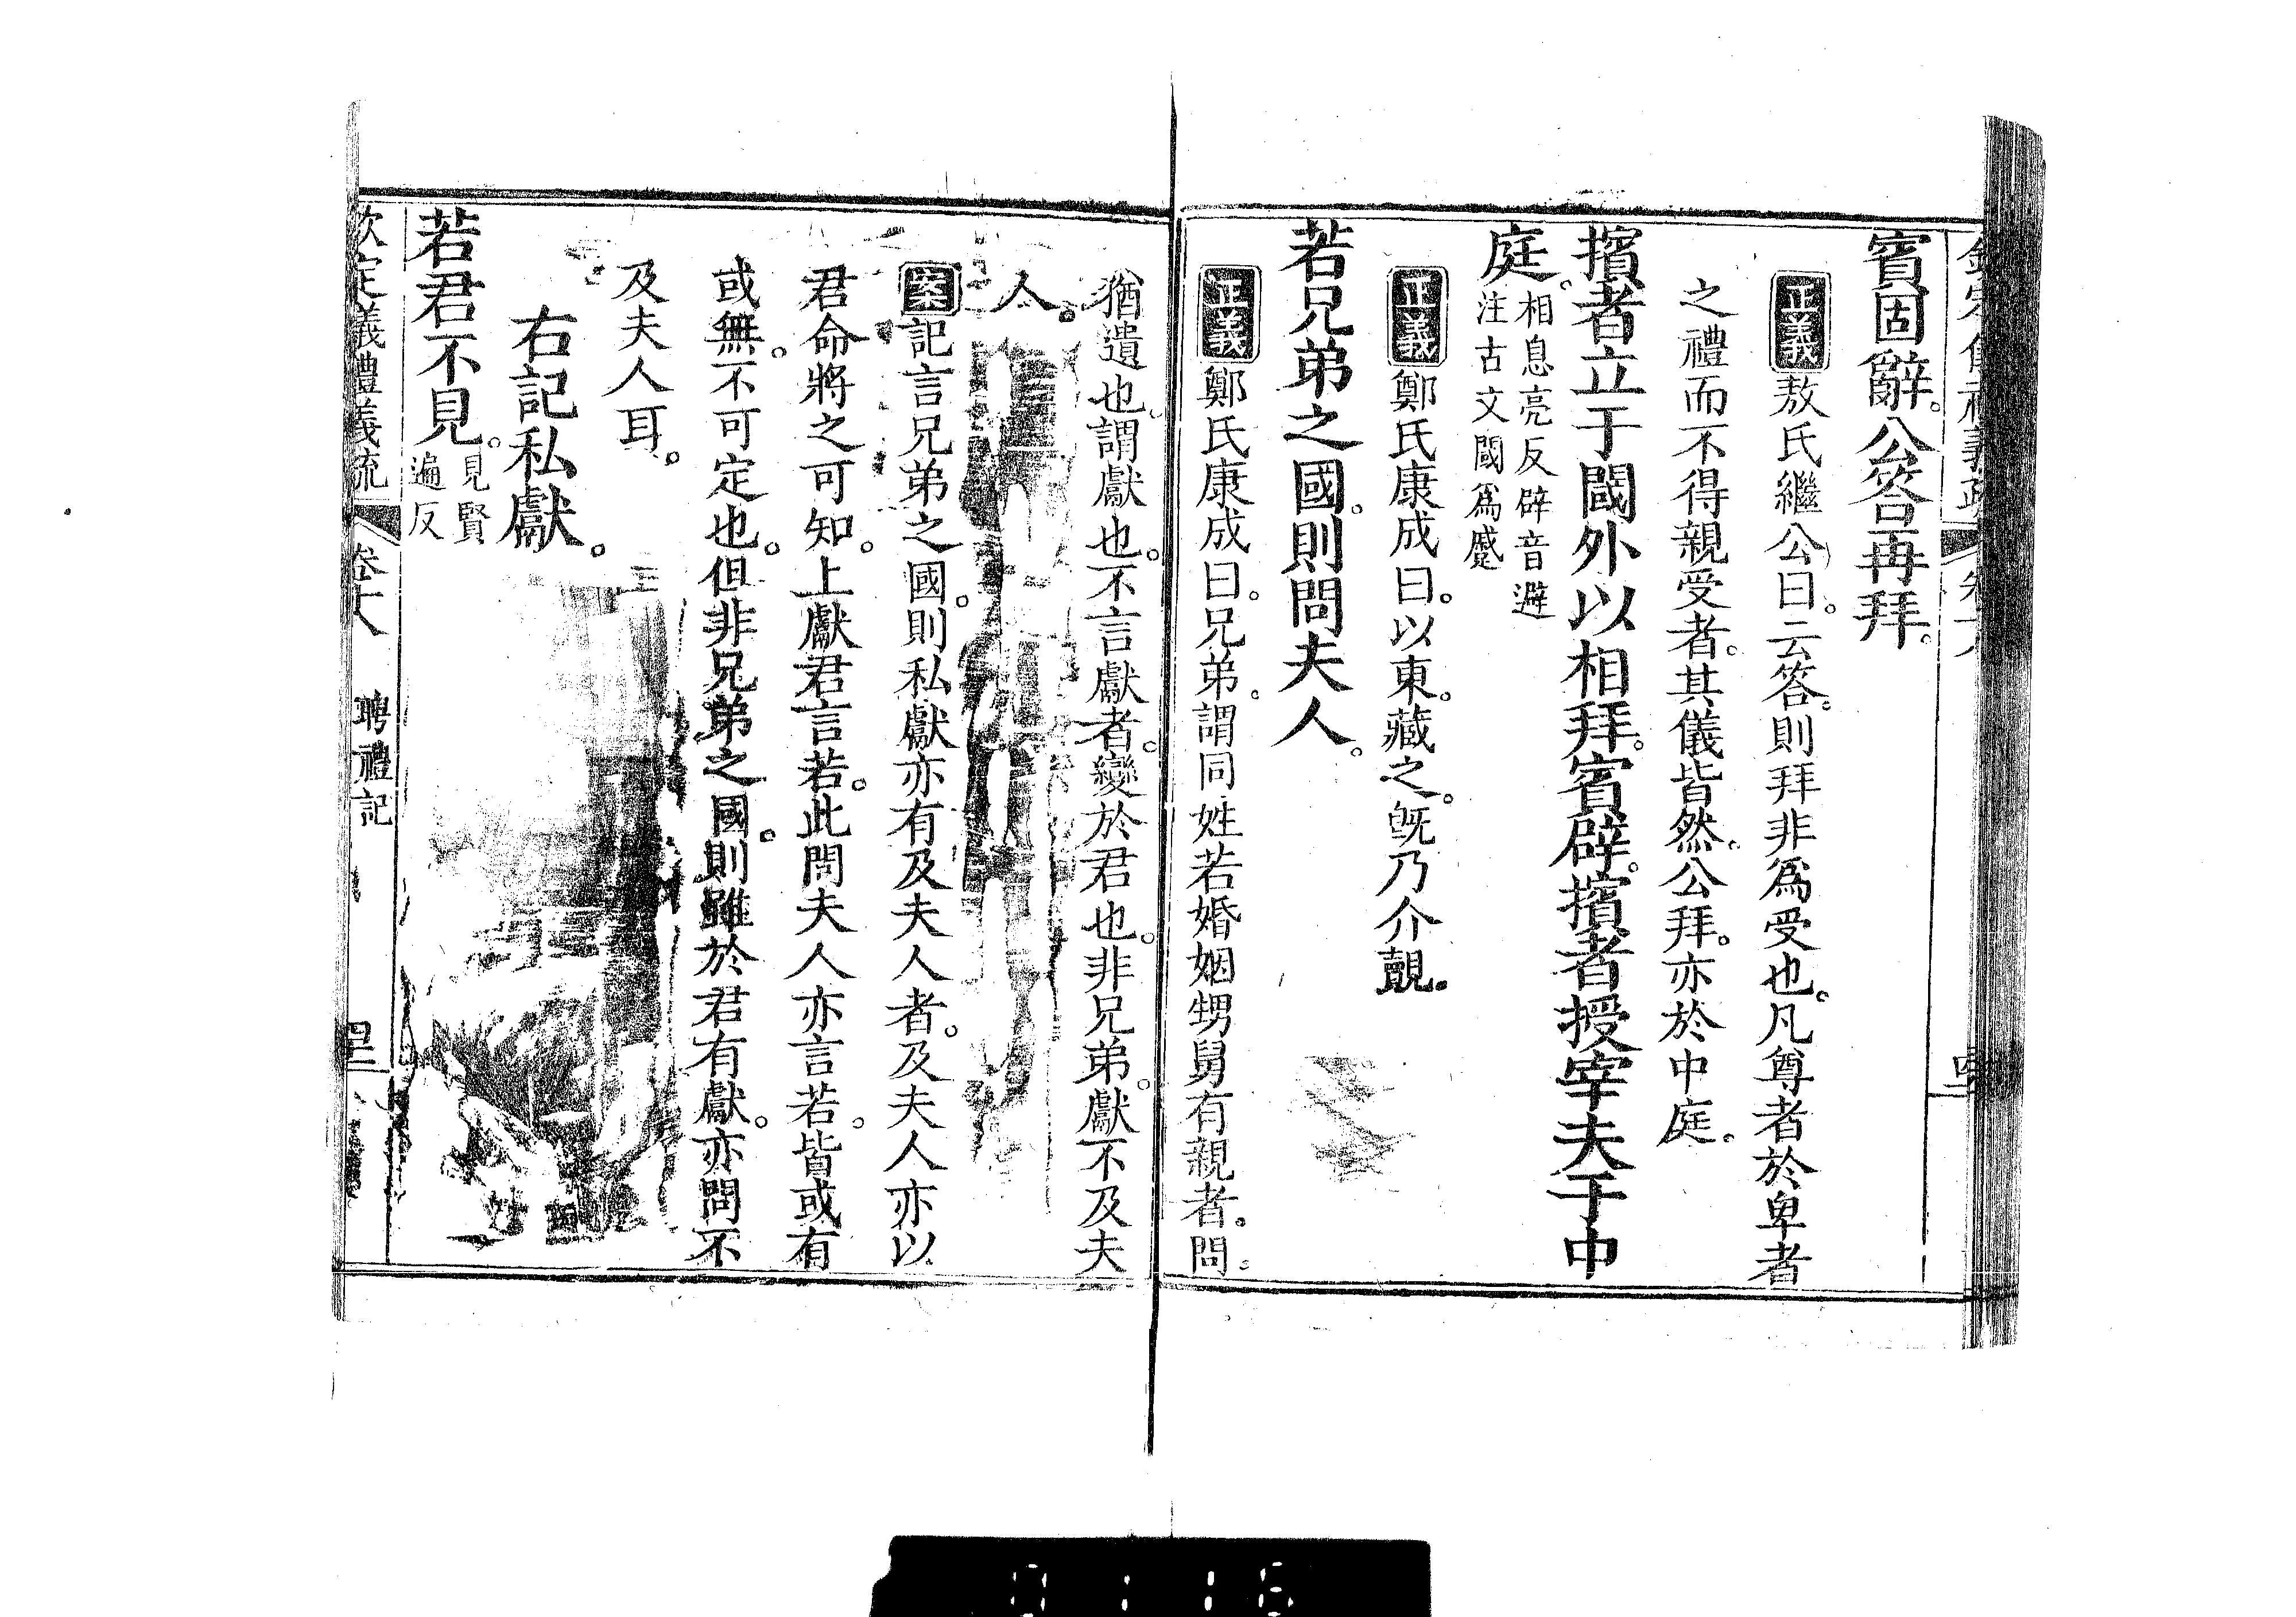 賓固辭。公答再拜。
正義敖氏繼公曰。云答。則拜非爲受也。凡尊者於卑者
之禮而不得親受者。其儀皆然。公拜。亦於中庭。
擯者立于閾外以相拜。賓辟。擯者授宰夫于中
庭。相息亮反辟音避
注古文閾爲蹙
正義鄭氏康成曰。以東。藏之。旣乃介覿。
若兄弟之國。則問夫人。
正義鄭氏康成曰。兄弟。謂同姓若婚姻甥舅有親者。問。
猶遺也。謂獻也。不言獻者。變於君也。非兄弟。獻不及夫
人。
案記言兄弟之國。則私獻亦有及夫人者。及夫人亦以
君命將之可知。上獻君言若。此問夫人亦言若。皆或有
或無。不可定也。但非兄弟之國。則雖於君有獻。亦問不
及夫人耳。
右記私獻。
若君不見。見賢
遍反
欽定儀禮義疏 卷十八 聘禮記